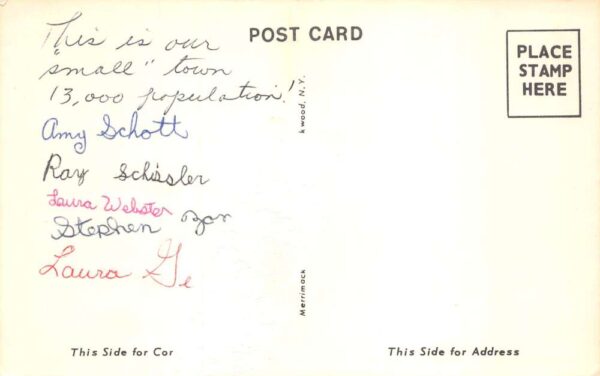 This is our
"small" town
13,000 population!
Amy Schott
Ray Schissler
Laura Webster
Stephen
Laura G
POST CARD
PLACE
STAMP
HERE
kwood, N.Y.
Merrimack
This Side for Cor
This Side for Address